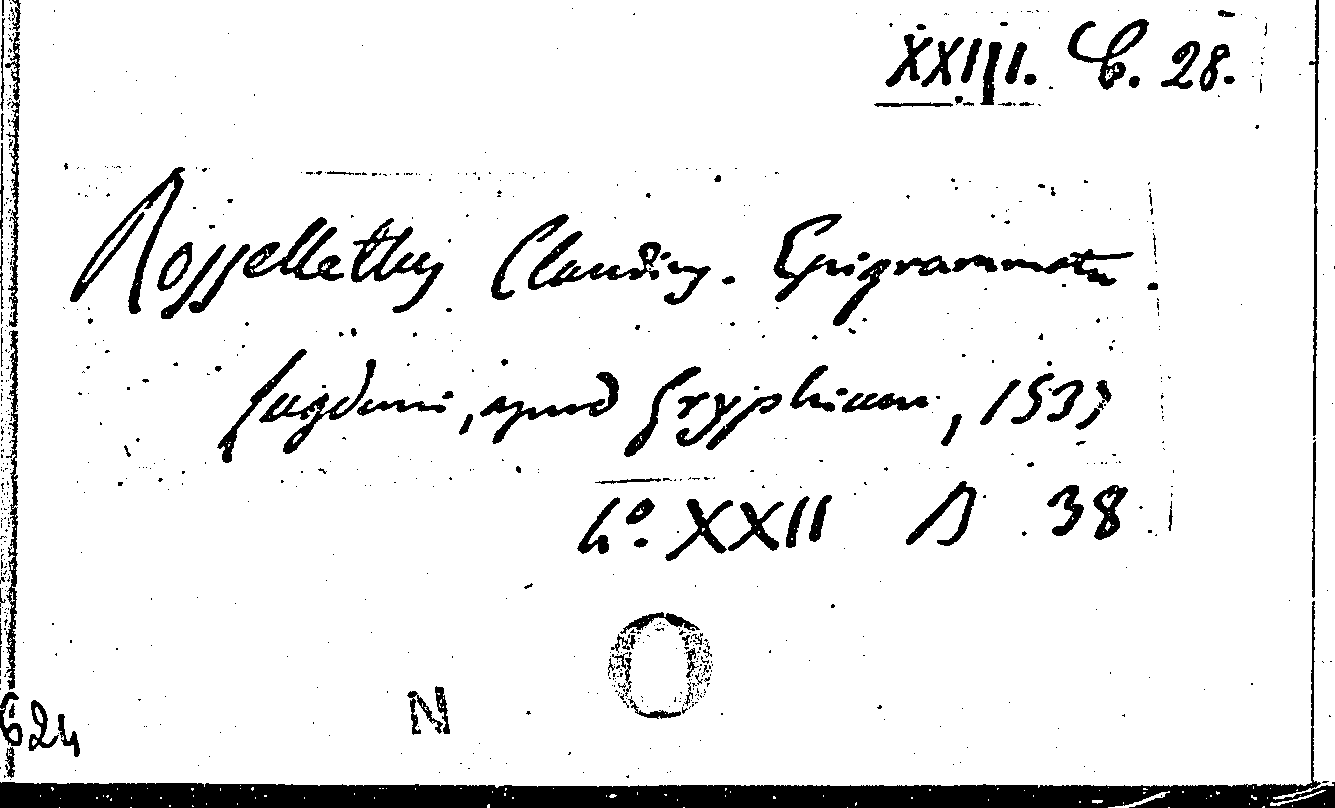 XXIII. C. 28.
Rosselletus Claudius. Epigrammata.
Lugduni, apud Gryphium, 1537
4º. XXII D 38
624
N